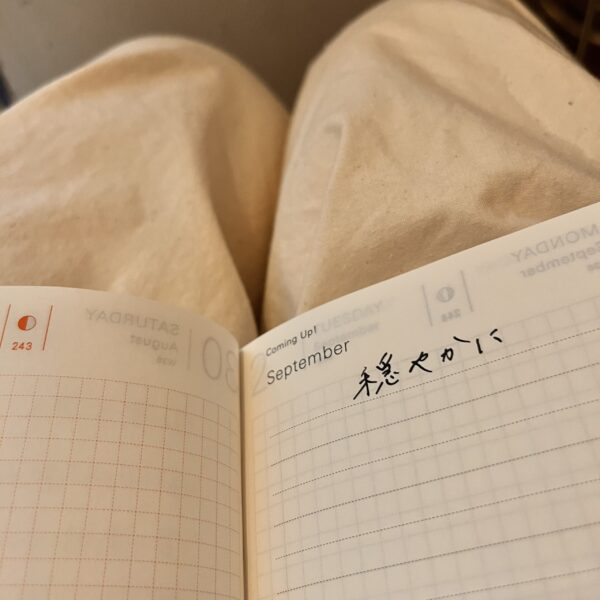 243
Coming Up!
September
穏やかに